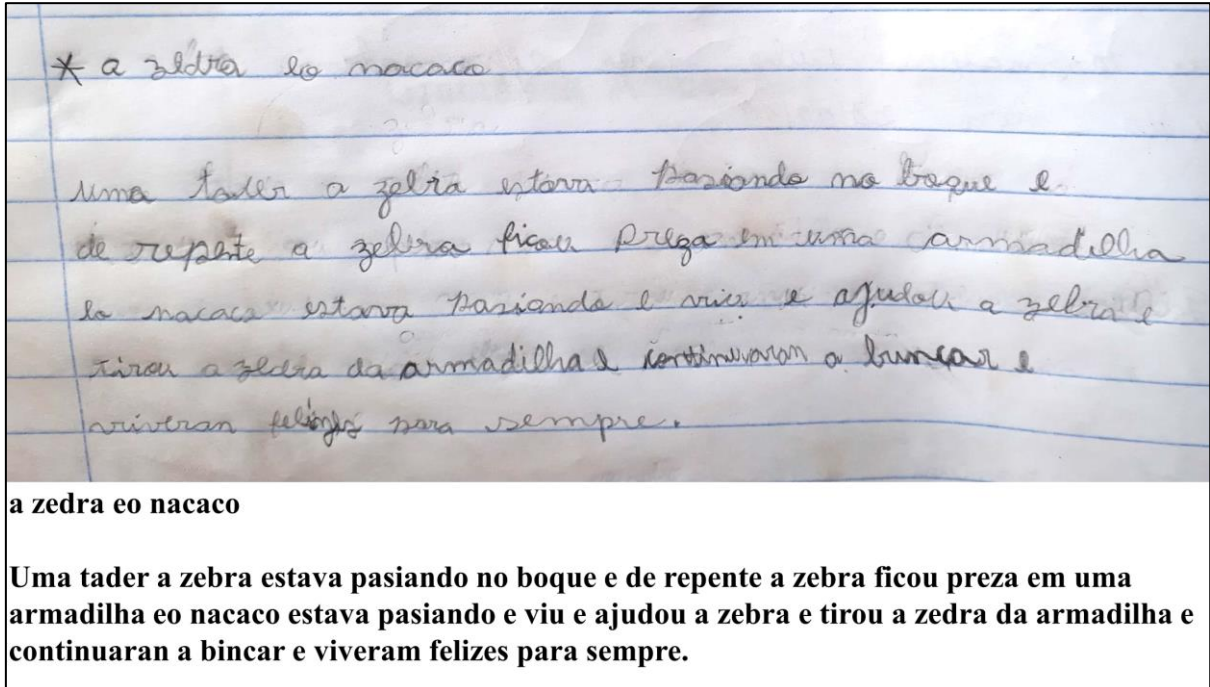 * a zedra eo nacaco
uma tader a zebra estava pasiando no boque e
de repente a zebra ficou preza em uma armadilha
eo nacaco estava pasiando e viu e ajudou a zebra e
tirou a zedra da armadilha e continuaran a bincar e
viveran felizes para sempre.
a zedra eo nacaco
Uma tader a zebra estava pasiando no boque e de repente a zebra ficou preza em uma
armadilha eo nacaco estava pasiando e viu e ajudou a zebra e tirou a zedra da armadilha e
continuaran a bincar e viveram felizes para sempre.